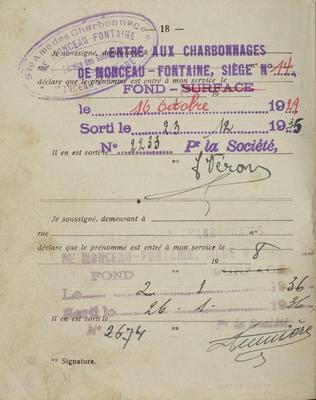 — 18 —
Sté Ame des Charbonnages
DE MONCEAU-FONTAINE
Je soussigné, demeurant à
ENTRÉ AUX CHARBONNAGES
DE MONCEAU-FONTAINE, SIÈGE N° 14
déclare que le prénommé est entré à mon service le
FOND - SURFACE
19
le 16 Octobre 1929
Sorti le 23 12 1935
Il en est sorti le
N° 2233 Pr la Société,
**
J Véron
Je soussigné, demeurant à
rue n°
CHARBONNAGES
déclare que le prénommé est entré à mon service le
DE MONCEAU-FONTAINE, SIÈGE N° 8
19
FOND
Le 2 1 1936
Sorti le 26 - 1 - 1936
Il en est sorti le
N° 2674 Pr la Société
**
** Signature.